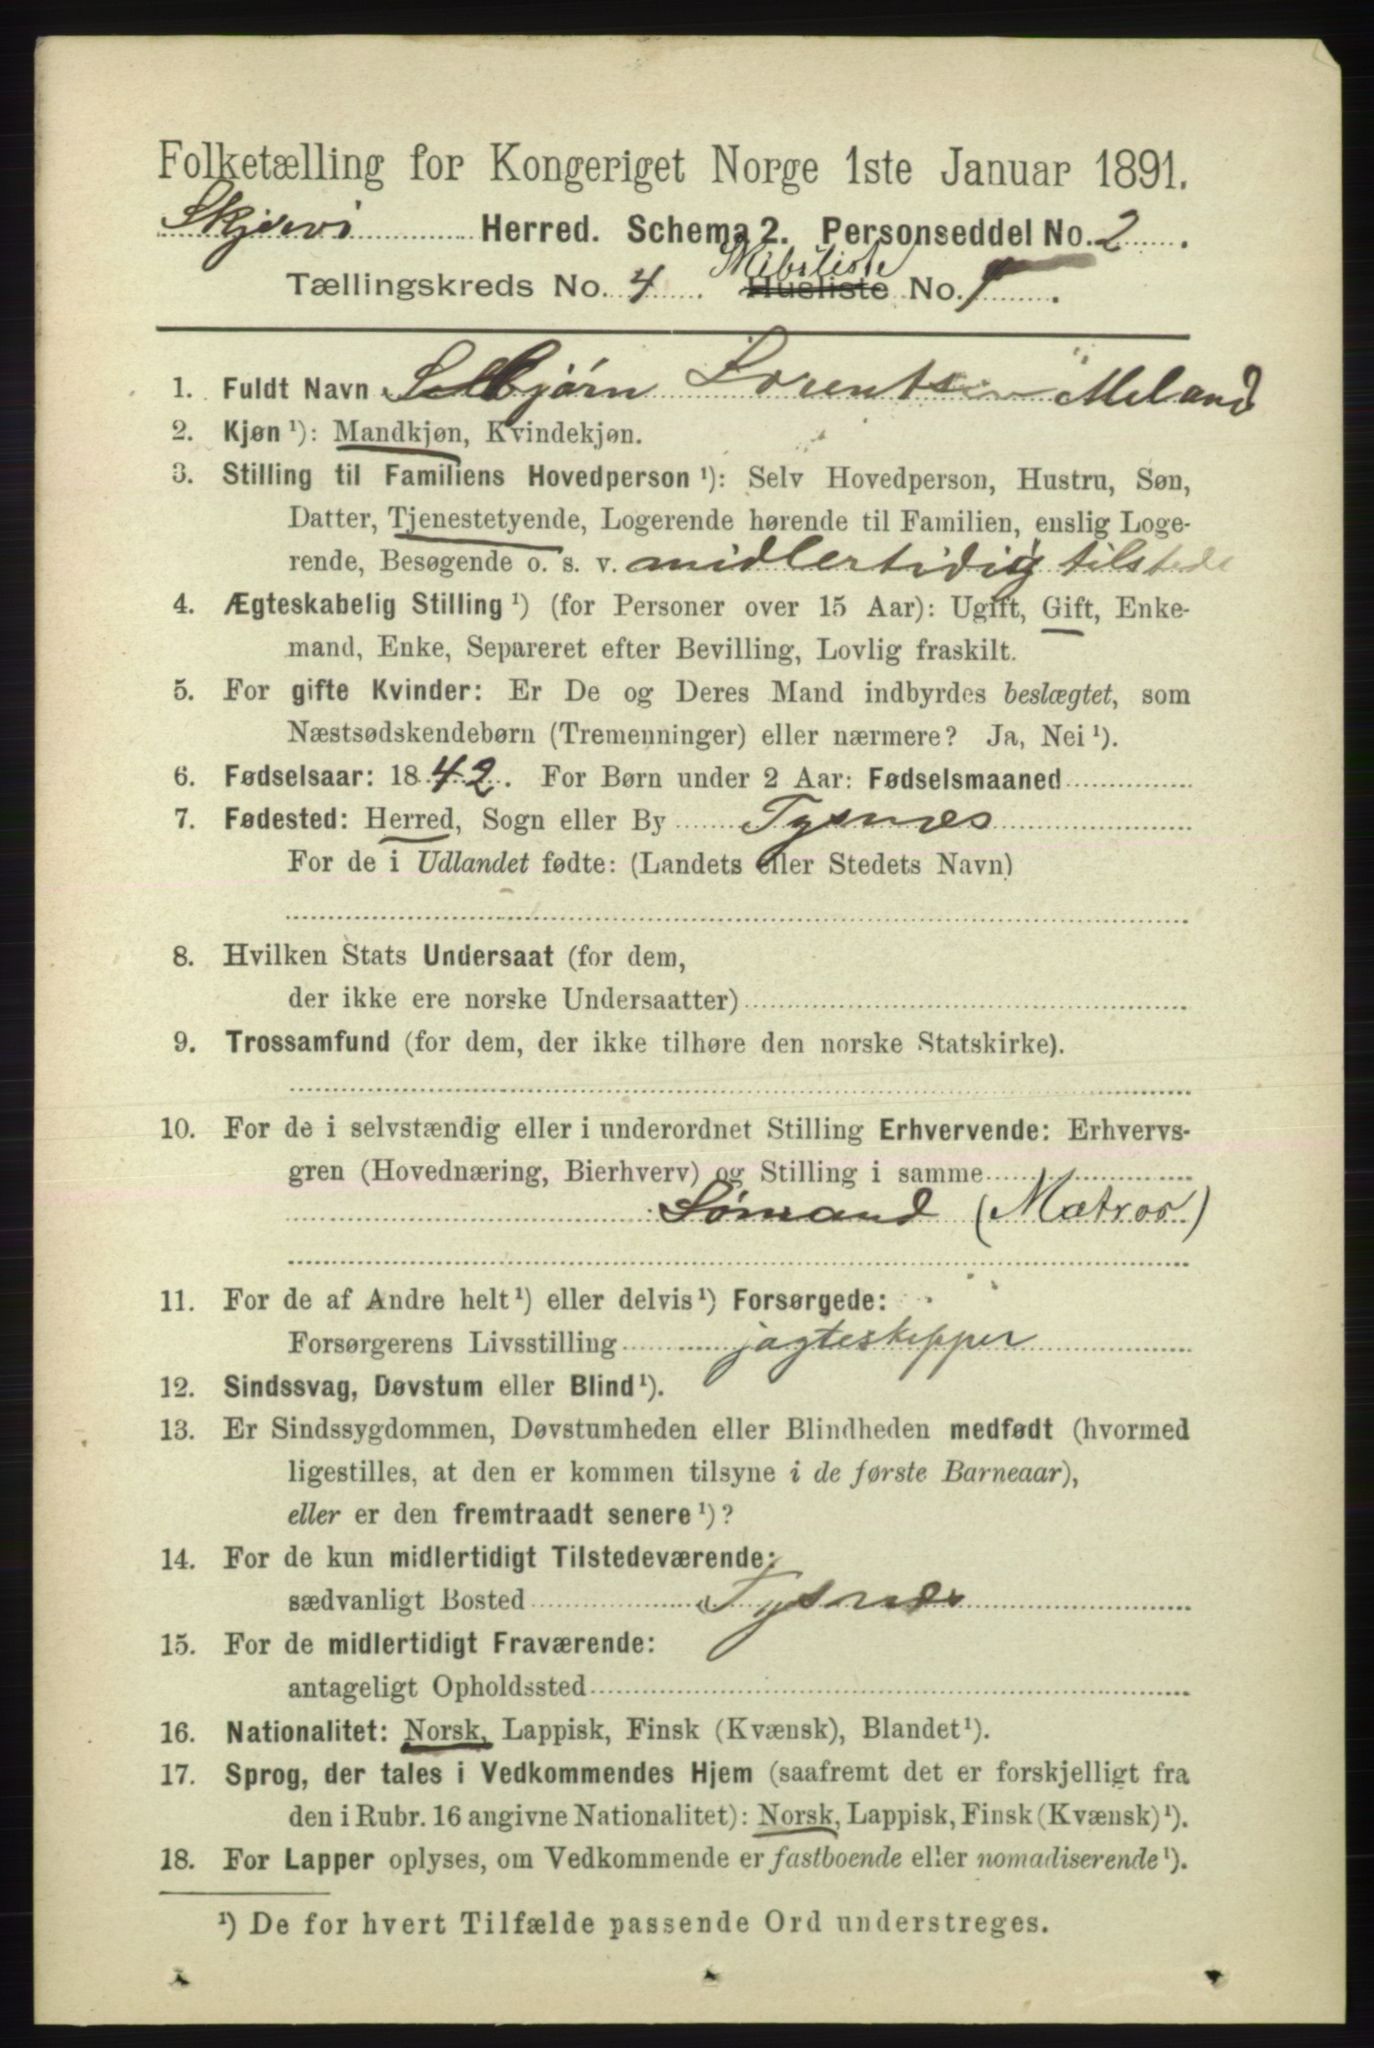 Folketælling for Kongeriget Norge 1ste Januar 1891.
Skjervø Herred. Schema 2. Personseddel No. 2.
Skibsliste
Tællingskreds No. 4. Husliste No. 1.
1. Fuldt Navn Selbjørn Lorentsen Meland
2. Kjøn ¹): Mandkjøn, Kvindekjøn.
3. Stilling til Familiens Hovedperson ¹): Selv Hovedperson, Hustru, Søn,
Datter, Tjenestetyende, Logerende hørende til Familien, enslig Loge-
rende, Besøgende o. s. v. midlertidig tilstede
4. Ægteskabelig Stilling ¹) (for Personer over 15 Aar): Ugift, Gift, Enke-
mand, Enke, Separeret efter Bevilling, Lovlig fraskilt.
5. For gifte Kvinder: Er De og Deres Mand indbyrdes beslægtet, som
Næstsødskendebørn (Tremenninger) eller nærmere? Ja, Nei ¹).
6. Fødselsaar: 1842. For Børn under 2 Aar: Fødselsmaaned
7. Fødested: Herred, Sogn eller By Tysnes
For de i Udlandet fødte: (Landets eller Stedets Navn)
8. Hvilken Stats Undersaat (for dem,
der ikke ere norske Undersaatter)
9. Trossamfund (for dem, der ikke tilhøre den norske Statskirke).
10. For de i selvstændig eller i underordnet Stilling Erhvervende: Erhvervs-
gren (Hovednæring, Bierhverv) og Stilling i samme
Sømand (Matros)
11. For de af Andre helt ¹) eller delvis ¹) Forsørgede:
Forsørgerens Livsstilling jagteskipper
12. Sindssvag, Døvstum eller Blind ¹).
13. Er Sindssygdommen, Døvstumheden eller Blindheden medfødt (hvormed
ligestilles, at den er kommen tilsyne i de første Barneaar),
eller er den fremtraadt senere ¹)?
14. For de kun midlertidigt Tilstedeværende:
sædvanligt Bosted Tysnes
15. For de midlertidigt Fraværende:
antageligt Opholdssted
16. Nationalitet: Norsk, Lappisk, Finsk (Kvænsk), Blandet ¹).
17. Sprog, der tales i Vedkommendes Hjem (saafremt det er forskjelligt fra
den i Rubr. 16 angivne Nationalitet): Norsk, Lappisk, Finsk (Kvænsk) ¹).
18. For Lapper oplyses, om Vedkommende er fastboende eller nomadiserende ¹).
¹) De for hvert Tilfælde passende Ord understreges.